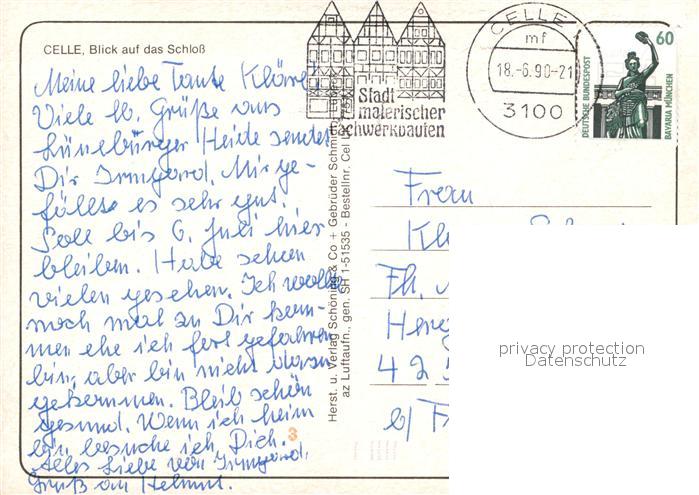 CELLE, Blick auf das Schloß
Meine liebe Tante Kläre
Viele lb. Grüße aus
Lüneburger Heide sendet
Dir Irmgard. Mir ge-
fällt es sehr gut.
Soll bis 6. Juli hier
bleiben. Habe schon
vieles gesehen. Ich wollte
noch mal zu Dir kom-
men ehe ich fort gefahren
bin, aber bin nicht dazu
gekommen. Bleib schön
gesund. Wenn ich heim
bin, besuche ich Dich.
Alles Liebe von Irmgard.
Gruß an Helmut.
Herst. u. Verlag Schöning & Co + Gebrüder Schmidt
az Luftaufn., gen. SH 1-51535 - Bestellnr. Cel
Stadt
malerischer
Fachwerkbauten
CELLE
mf
18.-6.90-21
3100
60
DEUTSCHE BUNDESPOST
BAVARIA MÜNCHEN
Frau
Kl
Fh.
Herz
42
b/ F
3
privacy protection
Datenschutz